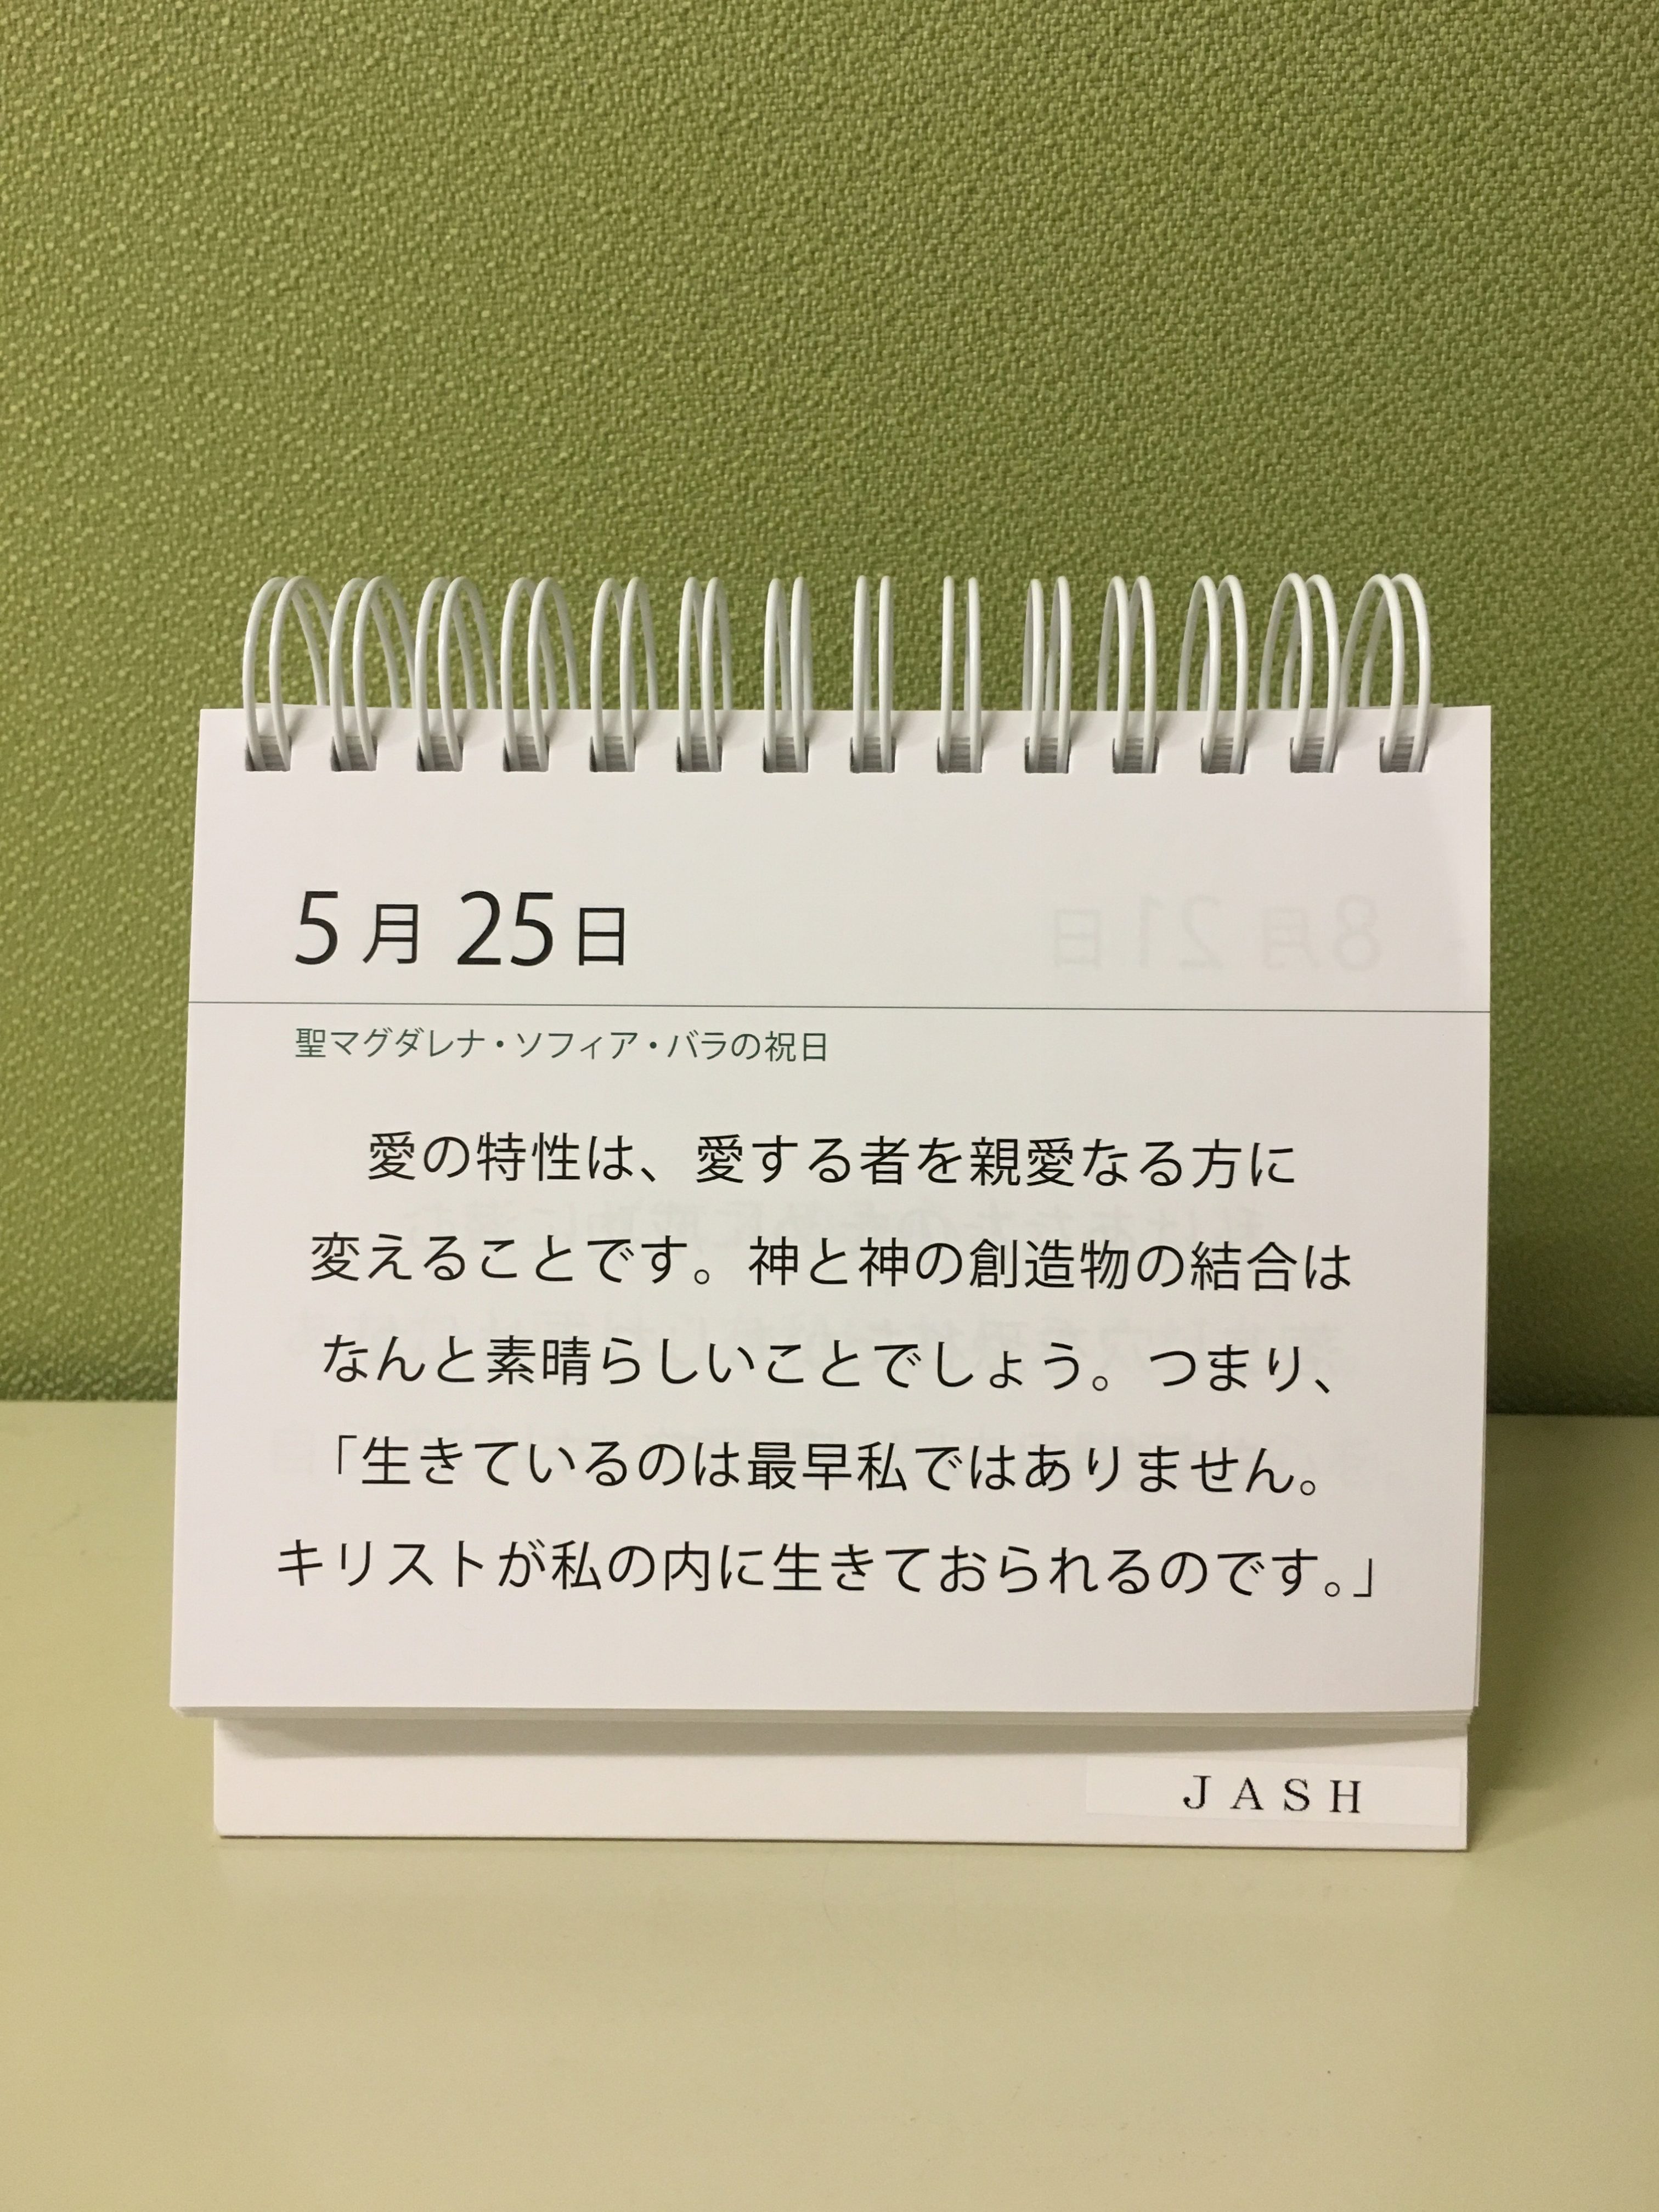 5月 25日
聖マグダレナ・ソフィア・バラの祝日
愛の特性は、愛する者を親愛なる方に
変えることです。神と神の創造物の結合は
なんと素晴らしいことでしょう。つまり、
「生きているのは最早私ではありません。
キリストが私の内に生きておられるのです。」
JASH